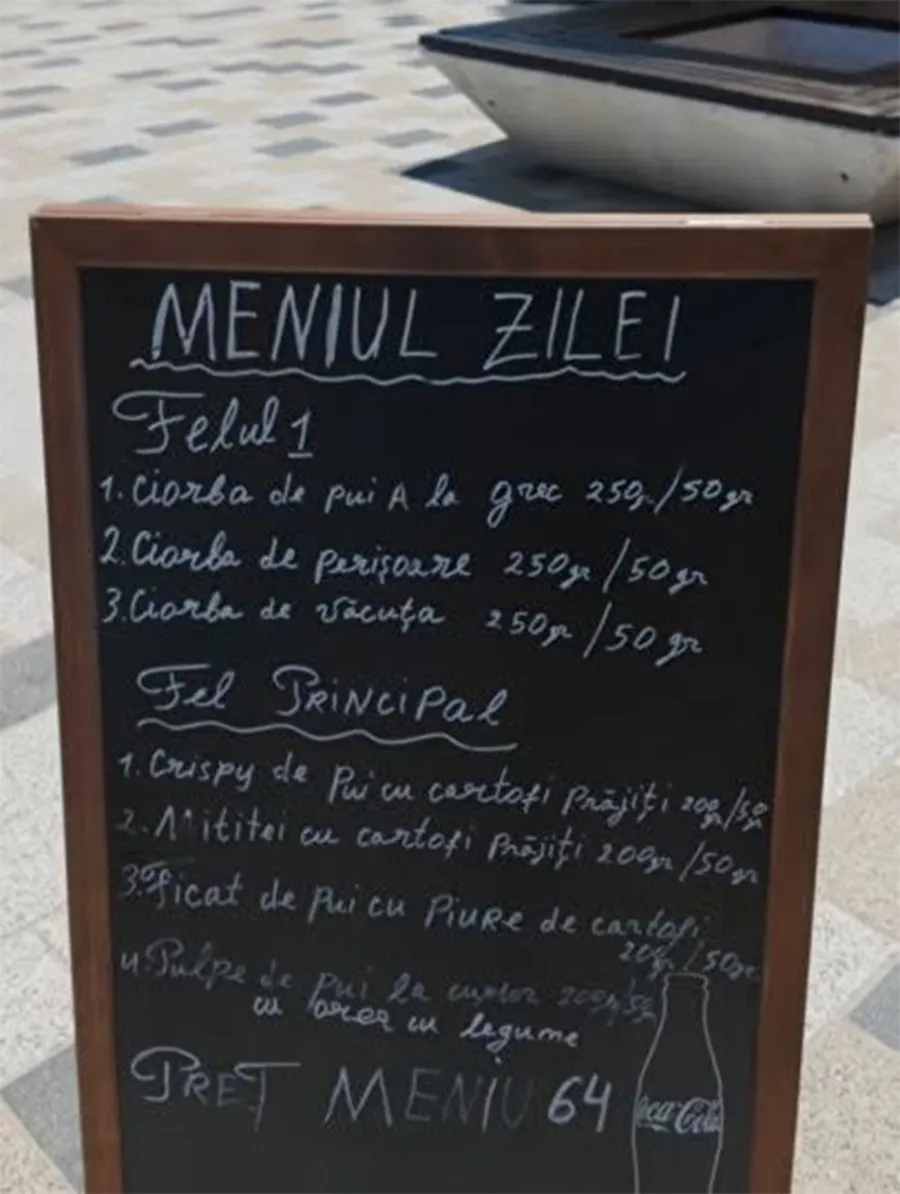 MENIUL ZILEI
Felul 1
1. Ciorba de pui A la grec 250gr/50gr
2. Ciorba de perișoare 250gr/50gr
3. Ciorba de văcuța 250gr/50gr
Fel Principal
1. Crispy de Pui cu cartofi prăjiți 200gr/50gr
2. Mititei cu cartofi prăjiți 200gr/50gr
3. Ficat de pui cu Piure de cartofi
200gr/50gr
4. Pulpe de pui la cuptor 200gr/50gr
cu orez cu legume
PREȚ MENIU 64
Coca-Cola